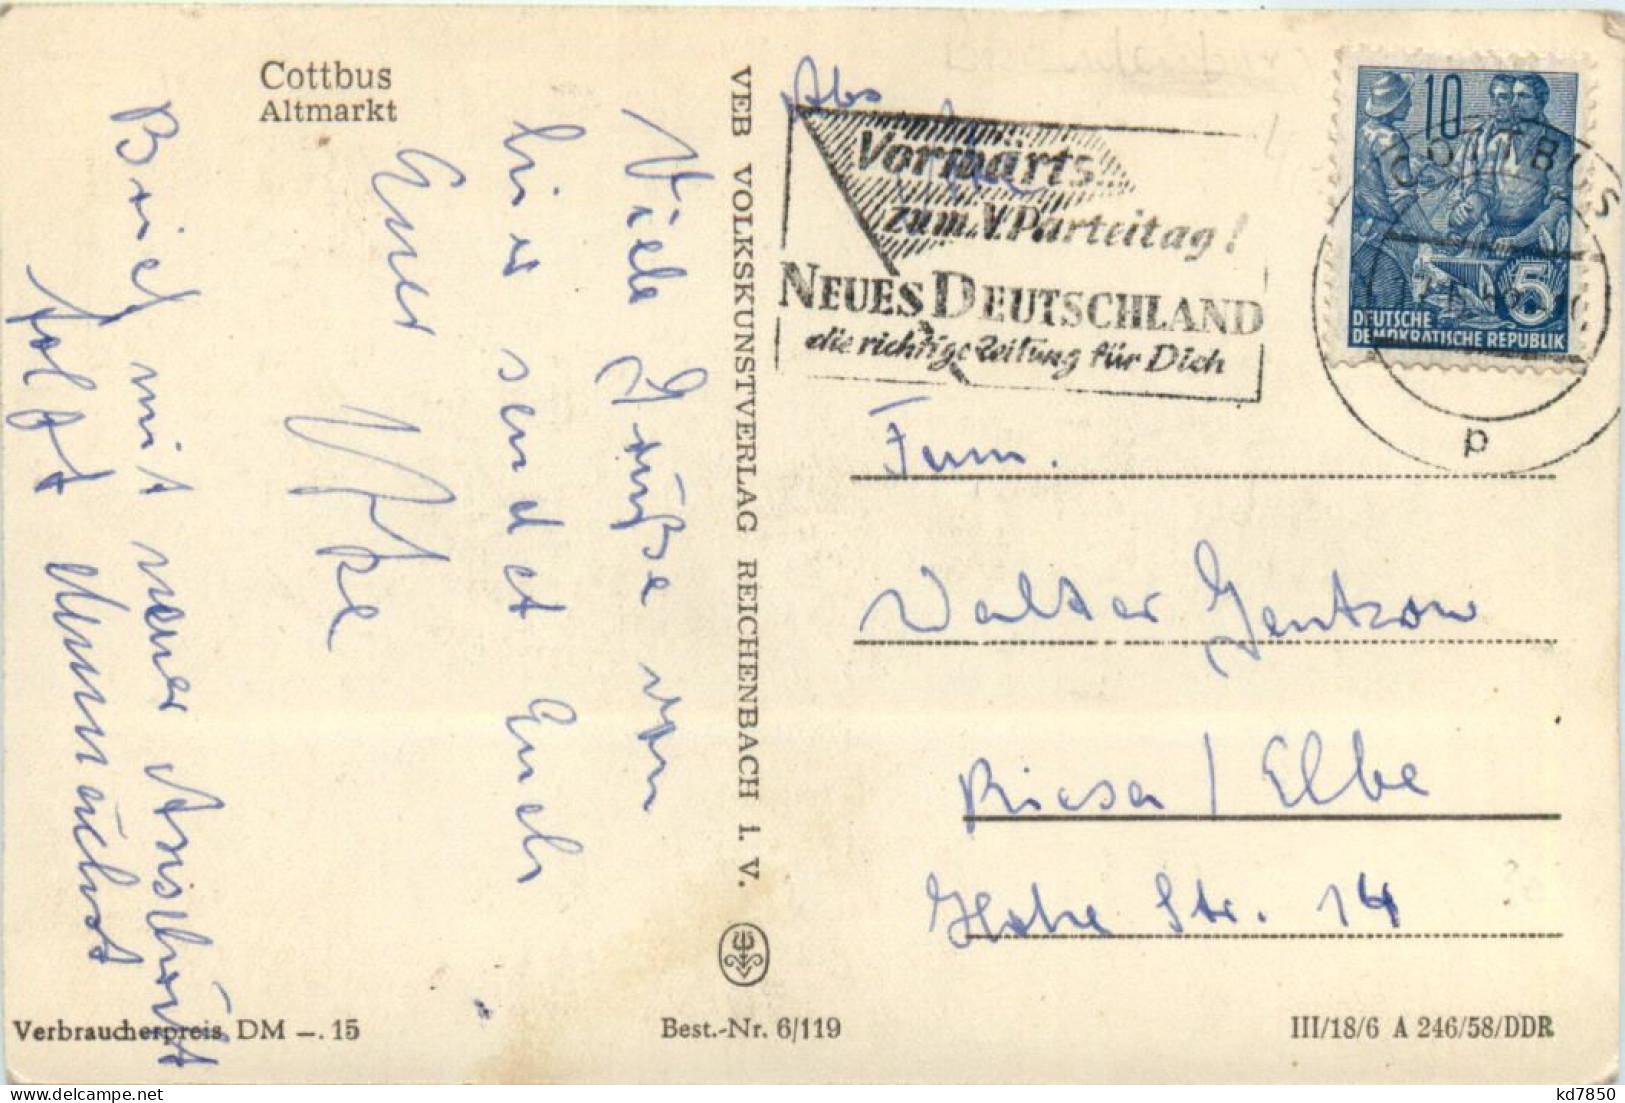 Cottbus
Altmarkt
Viele Grüße von
hier sendet Euch
Euer
Brief mit neuer Anschrift
folgt demnächst
VEB VOLKSKUNSTVERLAG REICHENBACH I. V.
Abs
Vorwärts...
zum V. Parteitag!
NEUES DEUTSCHLAND
die richtige Zeitung für Dich
10
5
DEUTSCHE
DEMOKRATISCHE REPUBLIK
COTTBUS
p
Fam.
Walter Gentzow
Riesa / Elbe
Hohe Str. 14
Verbraucherpreis DM —. 15
Best.-Nr. 6/119
III/18/6 A 246/58/DDR
kd7850